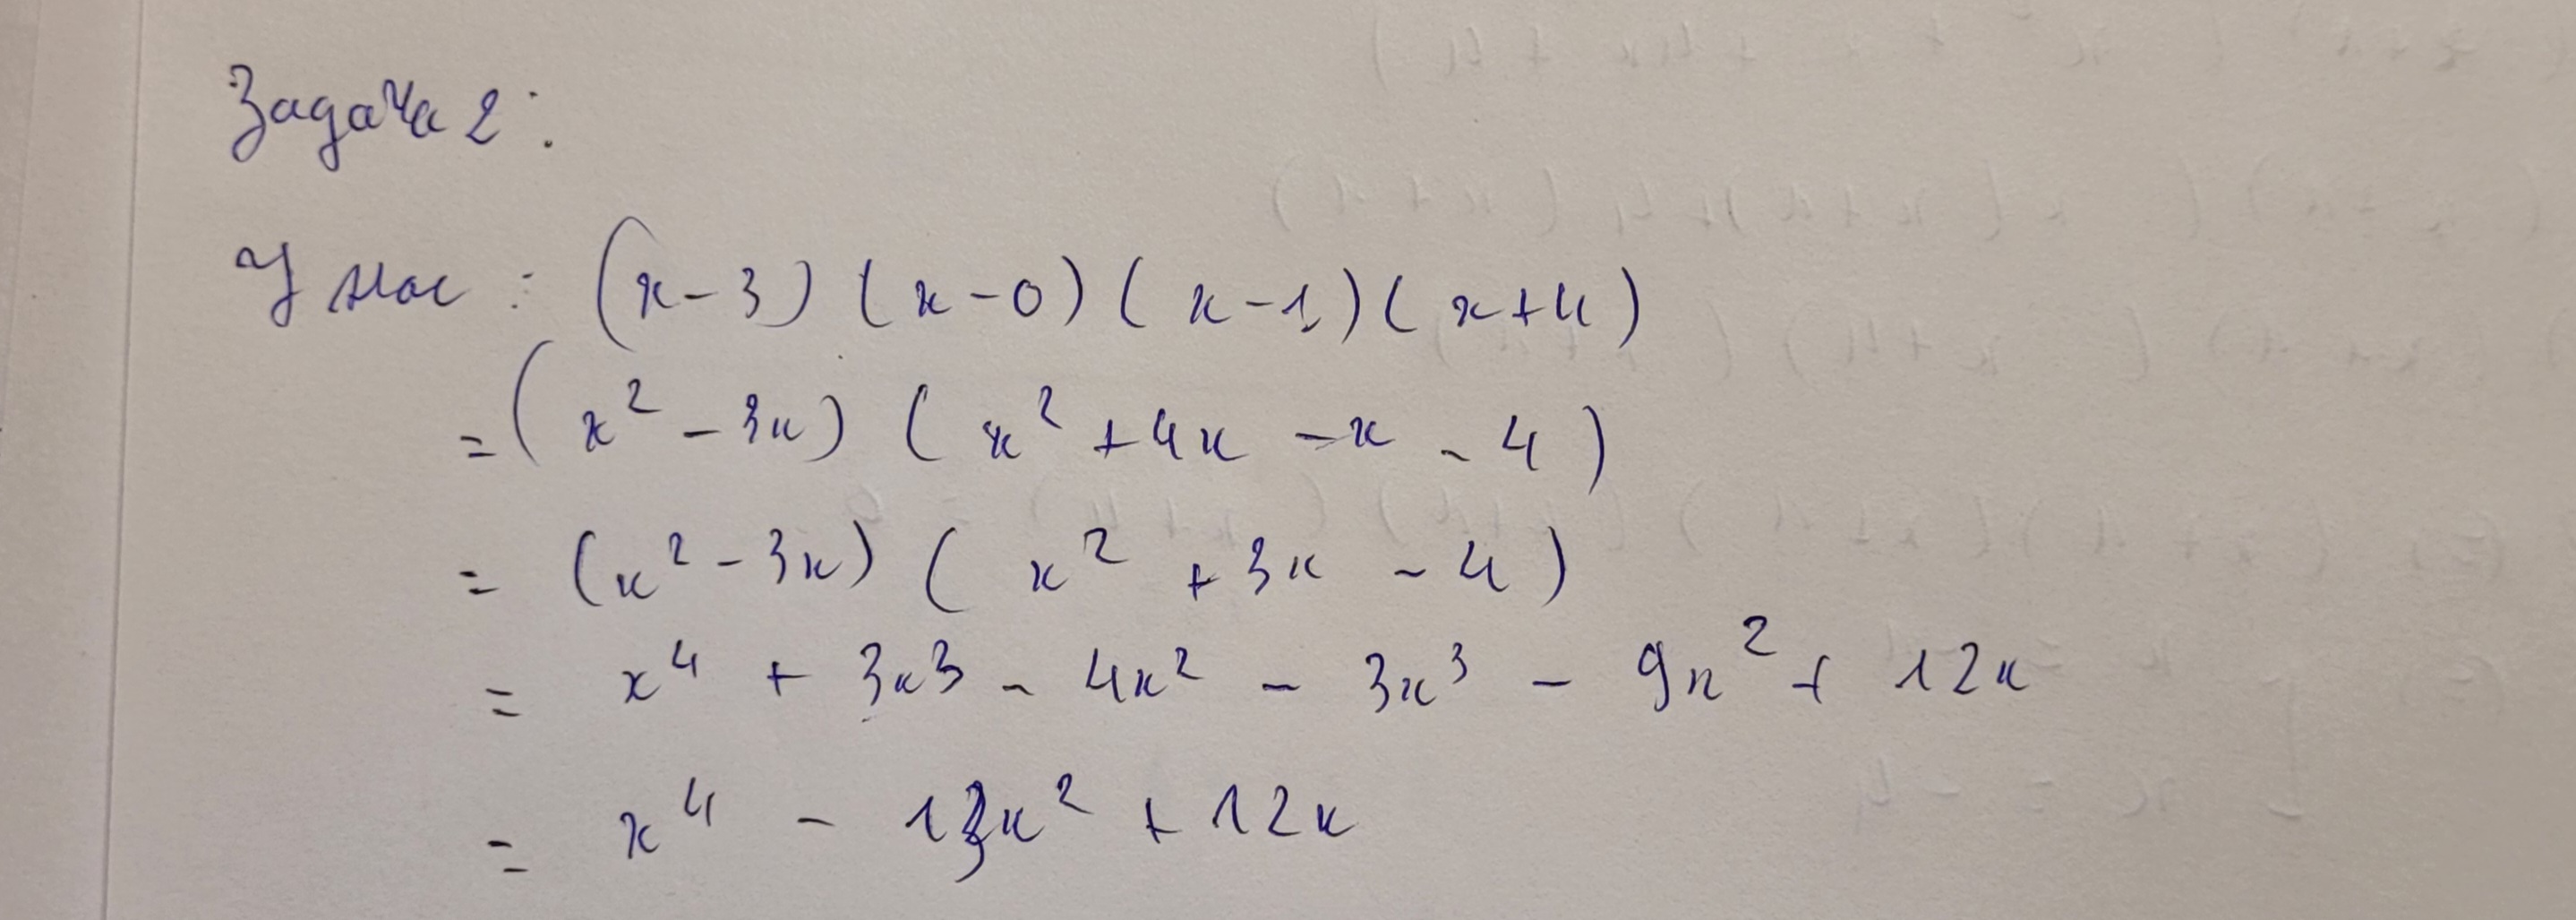 Задача 2:
У нас : (x-3)(x-0)(x-1)(x+4)
= (x² - 3x) (x² + 4x - x - 4)
= (x² - 3x) (x² + 3x - 4)
= x⁴ + 3x³ - 4x² - 3x³ - 9x² + 12x
= x⁴ - 13x² + 12x